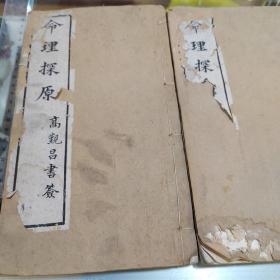 命理探原
高觐昌書簽
命理探